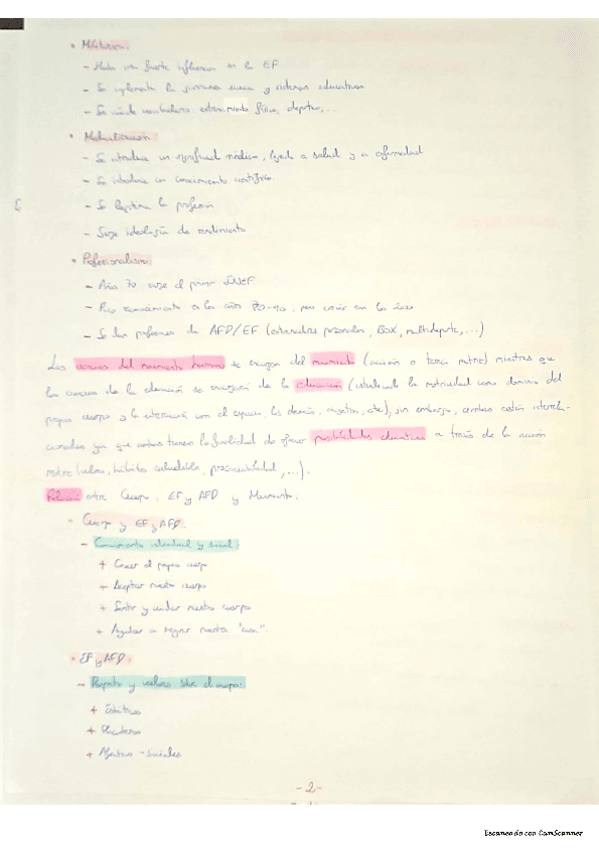 • Militarismo:
- Hubo una fuerte influencia en la EF
- Se implementa la gimnasia sueca y sistemas educativos
- Se añade vocabulario: entrenamiento físico, deportivo,...
• Medicalización:
- Se introduce un significado médico, ligado a salud y a enfermedad
- Se introduce un conocimiento científico.
- Se legitima la profesión
- Surge ideología de rendimiento
• Profesionalismo:
- Año 70 surge el primer INEF
- Poco reconocimiento a los años 70-90, pero
- Se dan profesiones de AFD/EF (entrenadores personales, BOX, multideporte,...)
Las ciencias del movimiento humano se encargan del movimiento (acción o tarea motriz) mientras que
las ciencias de la educación se encargan de la educación (estudiando la motricidad como dominio del
propio cuerpo y la interacción con el espacio, los demás, objetos, etc), sin embargo, ambas están interrela-
cionadas ya que ambas tienen la finalidad de ofrecer posibilidades educativas a través de la acción
motriz (valores, hábitos saludables, prosocialidad,...).
Relación entre Cuerpo, EF y AFD y Movimiento:
• Cuerpo y EF y AFD:
- Conocimiento individual y social:
+ Conocer el propio cuerpo
+ Aceptar nuestro cuerpo
+ Sentir y cuidar nuestro cuerpo
+ Ayudar a mejorar nuestra "casa".
• EF y AFD:
- y valores sobre el cuerpo:
+ Estéticos
+ Placenteros
+ Afectivos - Sociales
- 2 -
Escaneado con CamScanner